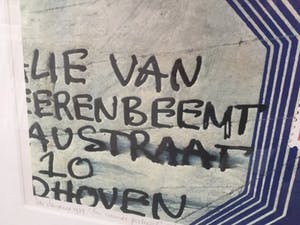 LIE VAN
EERENBEEMT
AUSTRAAT
10
DHOVEN